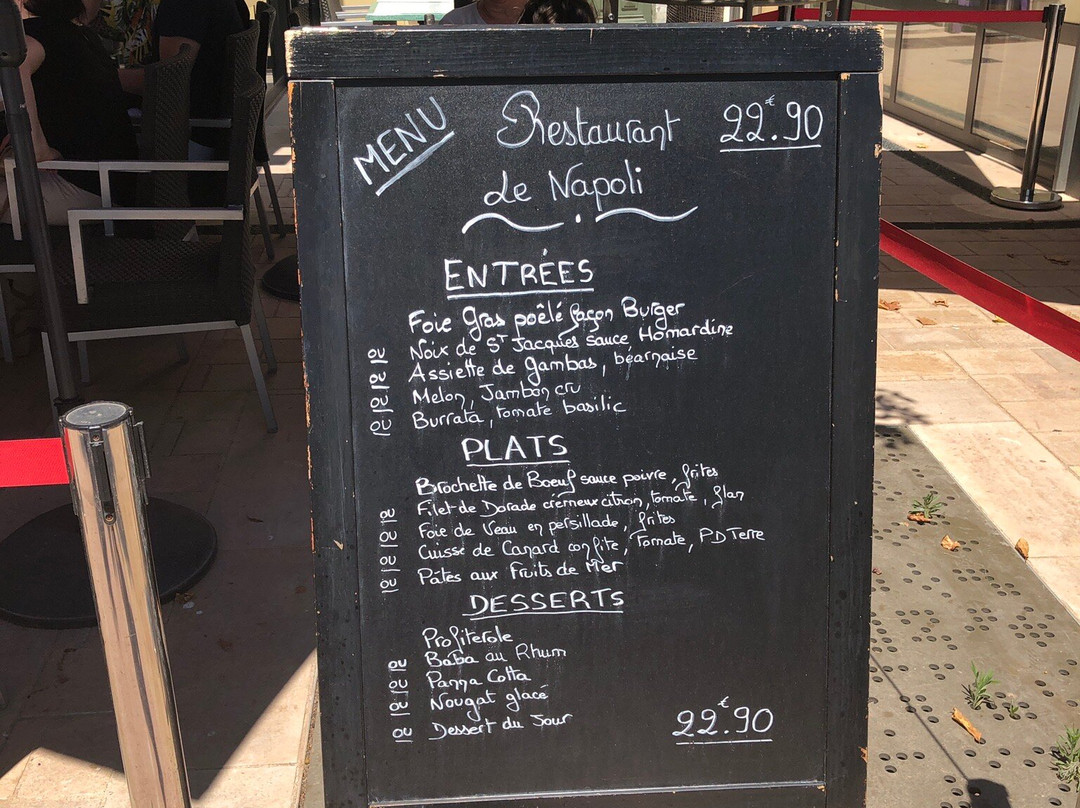 MENU
Restaurant
Le Napoli
22.90€
ENTRÉES
Foie Gras poêlé façon Burger
ou Noix de St Jacques sauce Homardine
ou Assiette de Gambas, béarnaise
ou Melon, Jambon cru
ou Burrata, tomate basilic
PLATS
Brochette de Boeuf sauce poivre, frites
ou Filet de Dorade crémeux citron, tomate, flan
ou Foie de Veau en persillade, frites
ou Cuisse de Canard confite, Tomate, PD Terre
ou Pâtes aux fruits de Mer
DESSERTS
Profiterole
ou Baba au Rhum
ou Panna Cotta
ou Nougat glacé
ou Dessert du Jour
22.90€